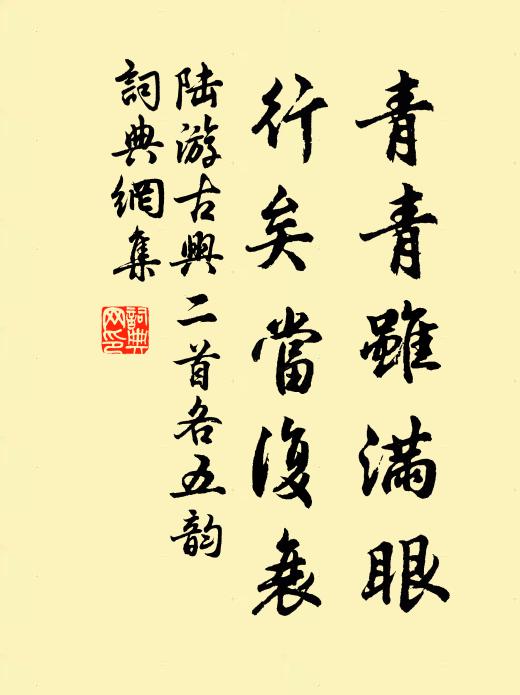 青青雖滿眼
行矣當復衰
陆游古興二首各五韵
詞典網集
詞典网印